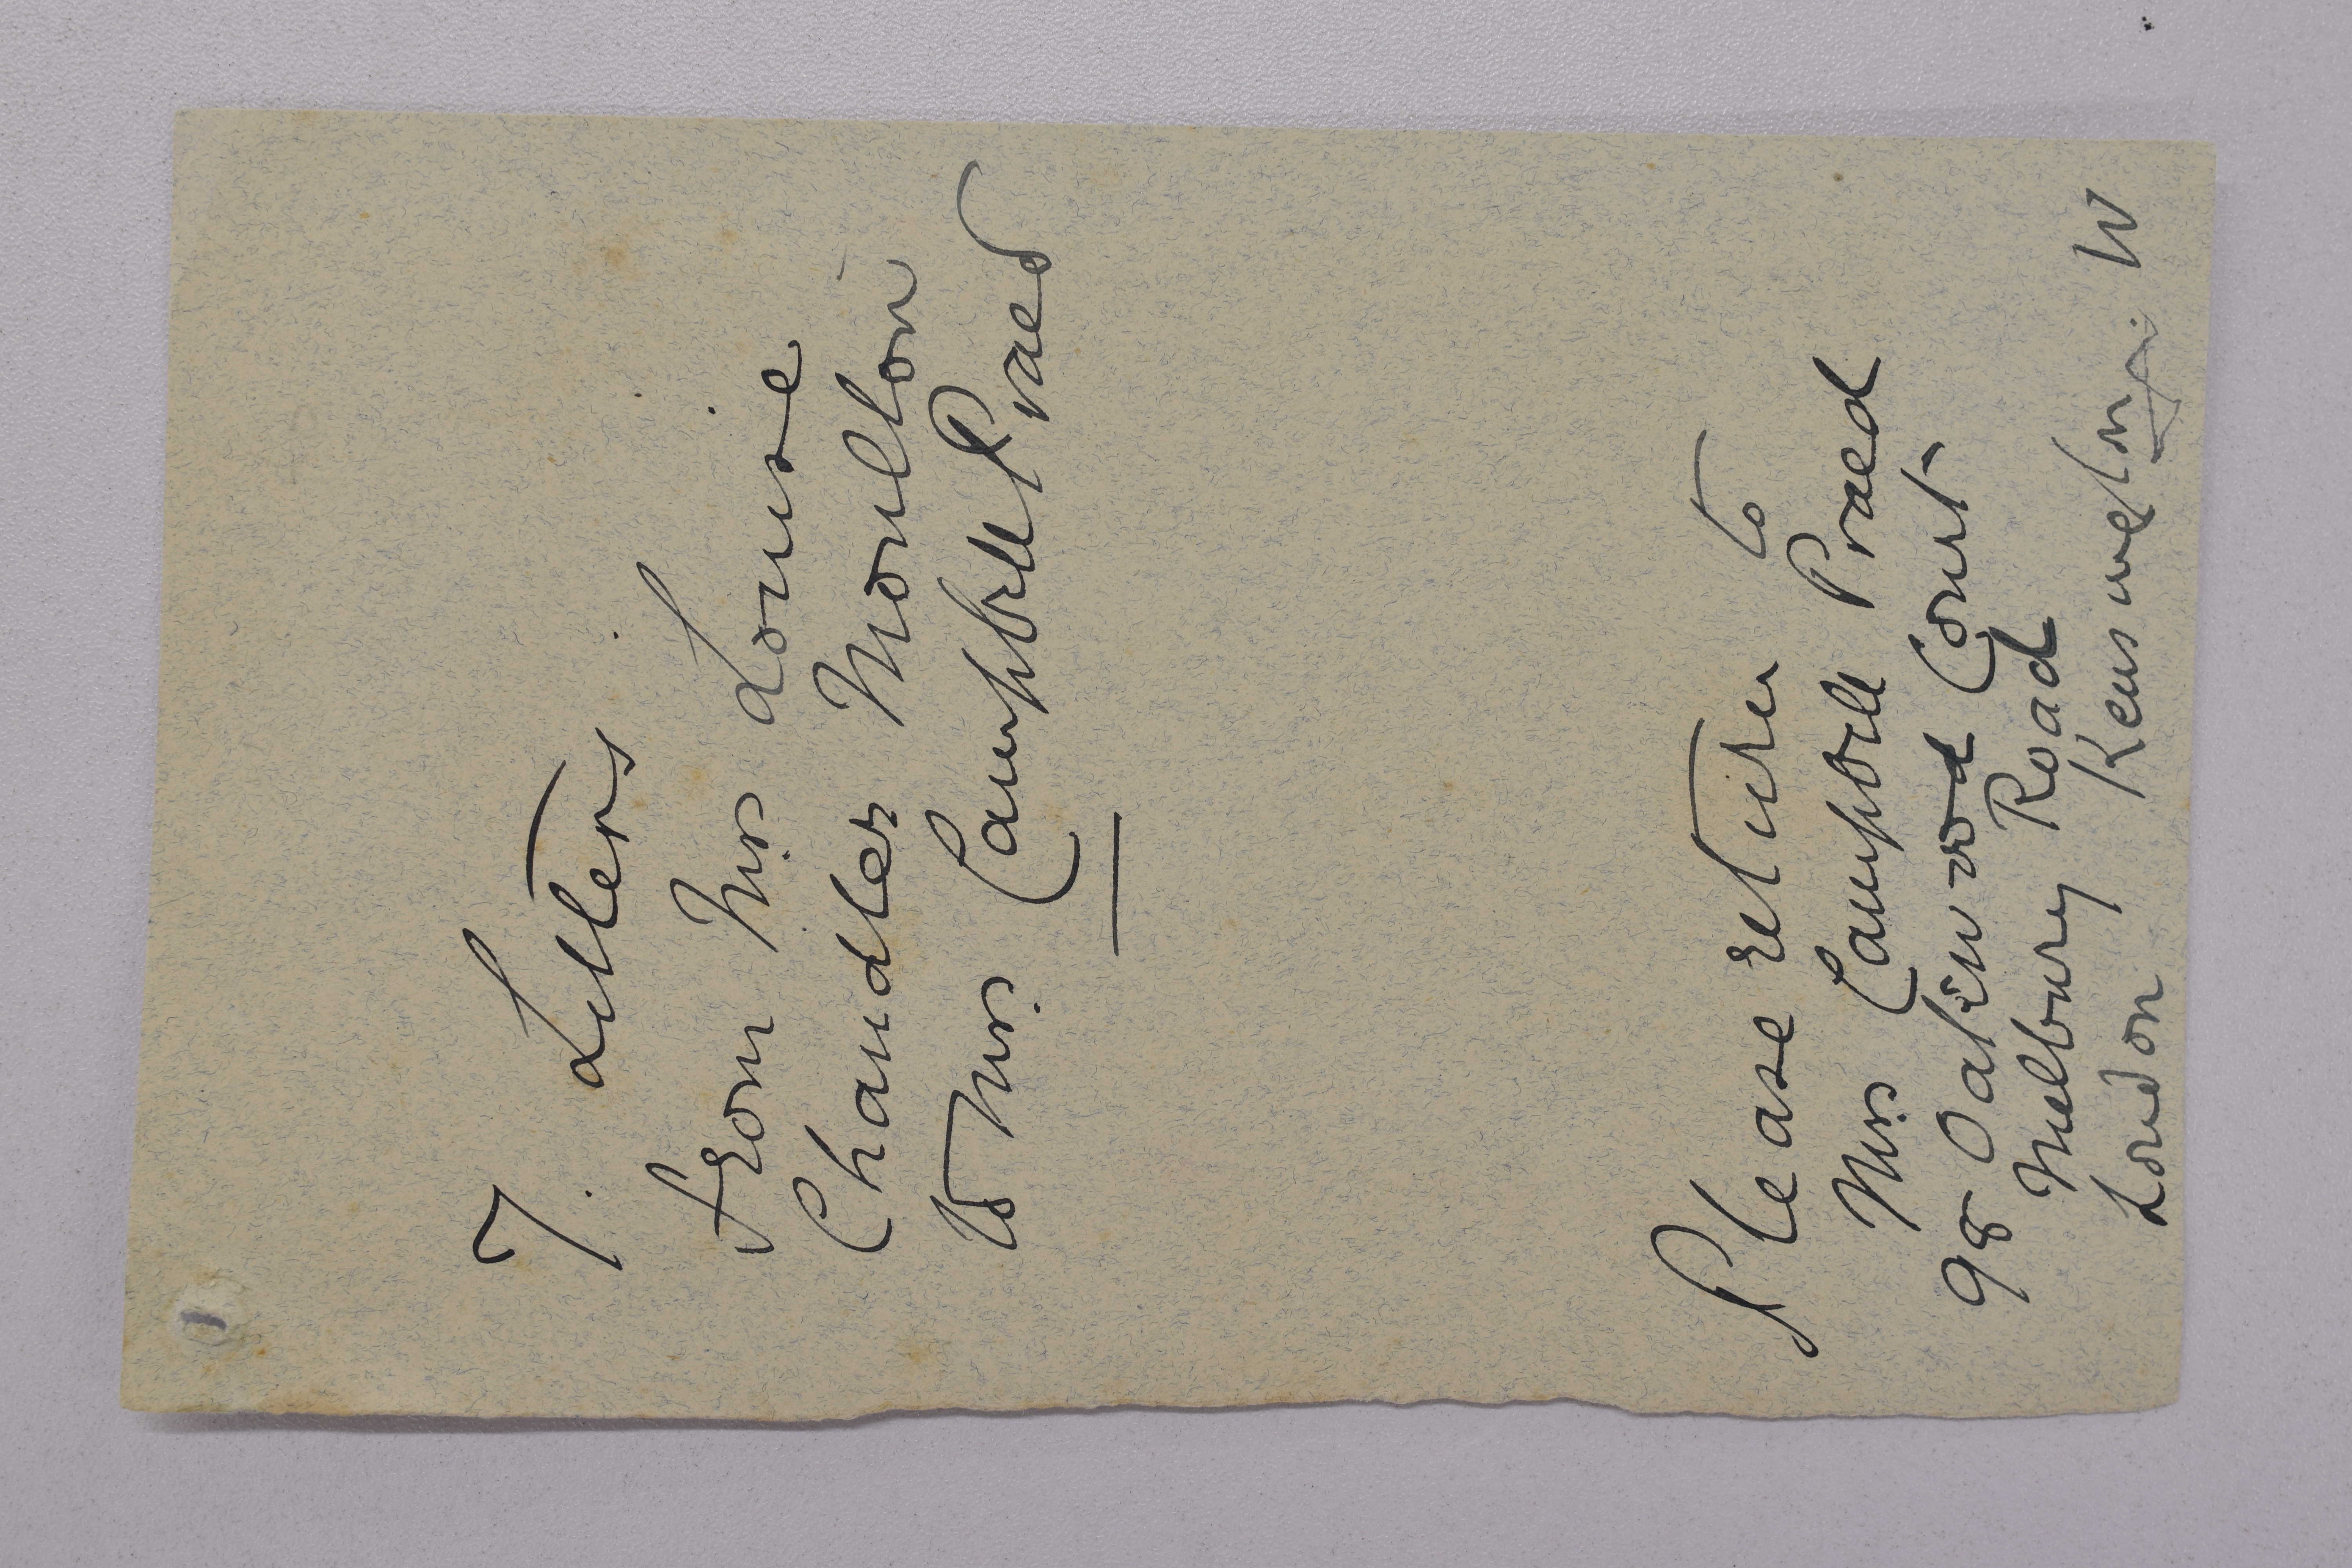 7. Letters
from Mrs. Louise
Chandler Moulton
to Mrs. Campbell Praed
Please return to
Mrs. Campbell Praed
98 Oakwood Court
Melbury Road
London Kensington. W